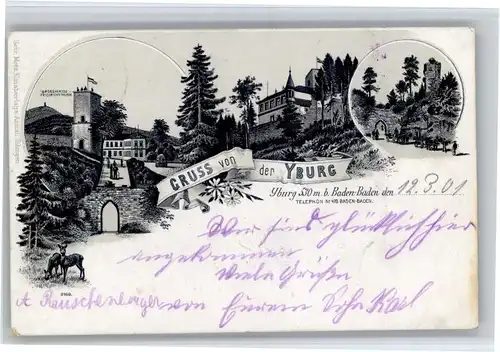 GRUSS von der YBURG
Yburg 530 m. b. Baden-Baden den 12.3.01
TELEPHON No 418 BADEN-BADEN.
Wir sind glücklich hier
angekommen
Viele Grüße
A Rauschenberger von Eurem Sohn Karl